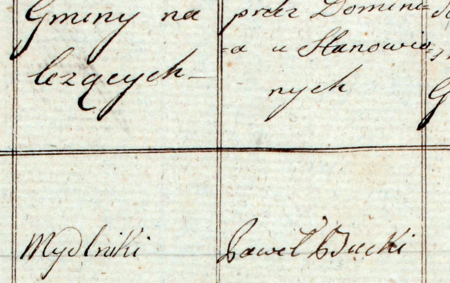 Gminy na
leżących
przez Domini
=a u Stanowio
nych
G
Mydlniki
Paweł Bucki